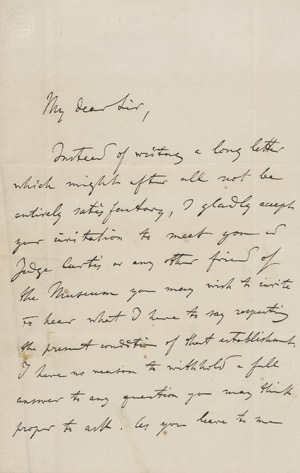 My dear Sir,
Instead of writing a long letter
which might after all not be
entirely satisfactory, I gladly accept
your invitation to meet you &
Judge Curtis or any other friend of
the Museum you may wish to invite
to hear what I have to say respecting
the present condition of that establishment.
I have no reason to withhold a full
answer to any question you may think
proper to ask. As you leave to me